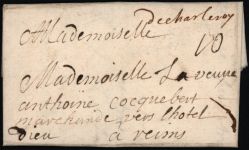 De charleroy
A Mademoiselle
Mademoiselle La veuve
anthoine Cocquebert
marchande vers l'hotel
Dieu
a reims